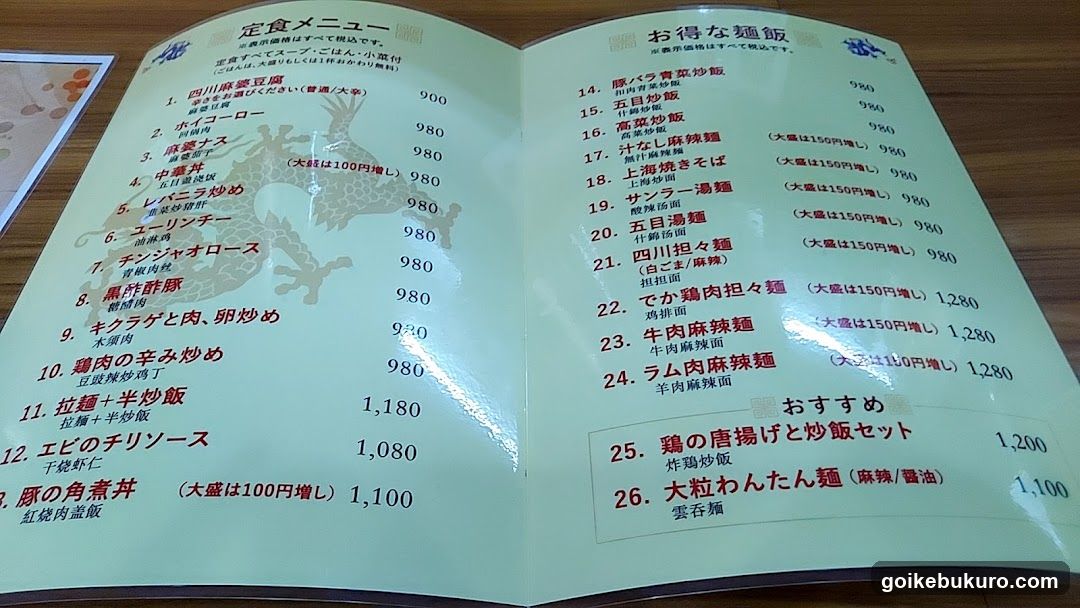 定食メニュー
※表示価格はすべて税込です。
定食すべてスープ・ごはん・小菜付
(ごはんは、大盛りもしくは1杯おかわり無料)
1. 四川麻婆豆腐 900
辛さをお選びください(普通/大辛)
麻婆豆腐
2. ホイコーロー 980
回锅肉
3. 麻婆ナス 980
麻婆茄子
4. 中華丼 (大盛は100円増し) 980
五目盖浇饭
5. レバニラ炒め 980
韭菜炒猪肝
6. ユーリンチー 980
油淋鸡
7. チンジャオロース 980
青椒肉丝
8. 黒酢酢豚 980
糖醋肉
9. キクラゲと肉、卵炒め 980
木须肉
10. 鶏肉の辛み炒め 980
豆豉辣炒鸡丁
11. 拉麺+半炒飯 1,180
拉麺+半炒飯
12. エビのチリソース 1,080
干烧虾仁
3. 豚の角煮丼 (大盛は100円増し) 1,100
紅烧肉盖飯
お得な麺飯
※表示価格はすべて税込です。
14. 豚バラ青菜炒飯 980
扣肉青菜炒飯
15. 五目炒飯 980
什錦炒飯
16. 高菜炒飯 980
高菜炒飯
17. 汁なし麻辣麺 (大盛は150円増し) 980
無汁麻辣麺
18. 上海焼きそば (大盛は150円増し) 980
上海炒面
19. サンラー湯麺 (大盛は150円増し) 980
酸辣汤面
20. 五目湯麺 (大盛は150円増し) 980
什錦汤面
21. 四川担々麺 (大盛は150円増し) 980
(白ごま/麻辣)
担担面
22. でか鶏肉担々麺 (大盛は150円増し) 1,280
鸡排面
23. 牛肉麻辣麺 (大盛は150円増し) 1,280
牛肉麻辣面
24. ラム肉麻辣麺 (大盛は150円増し) 1,280
羊肉麻辣面
おすすめ
25. 鶏の唐揚げと炒飯セット 1,200
炸鶏炒飯
26. 大粒わんたん麺 (麻辣/醤油) 1,100
雲呑麺
goikebukuro.com